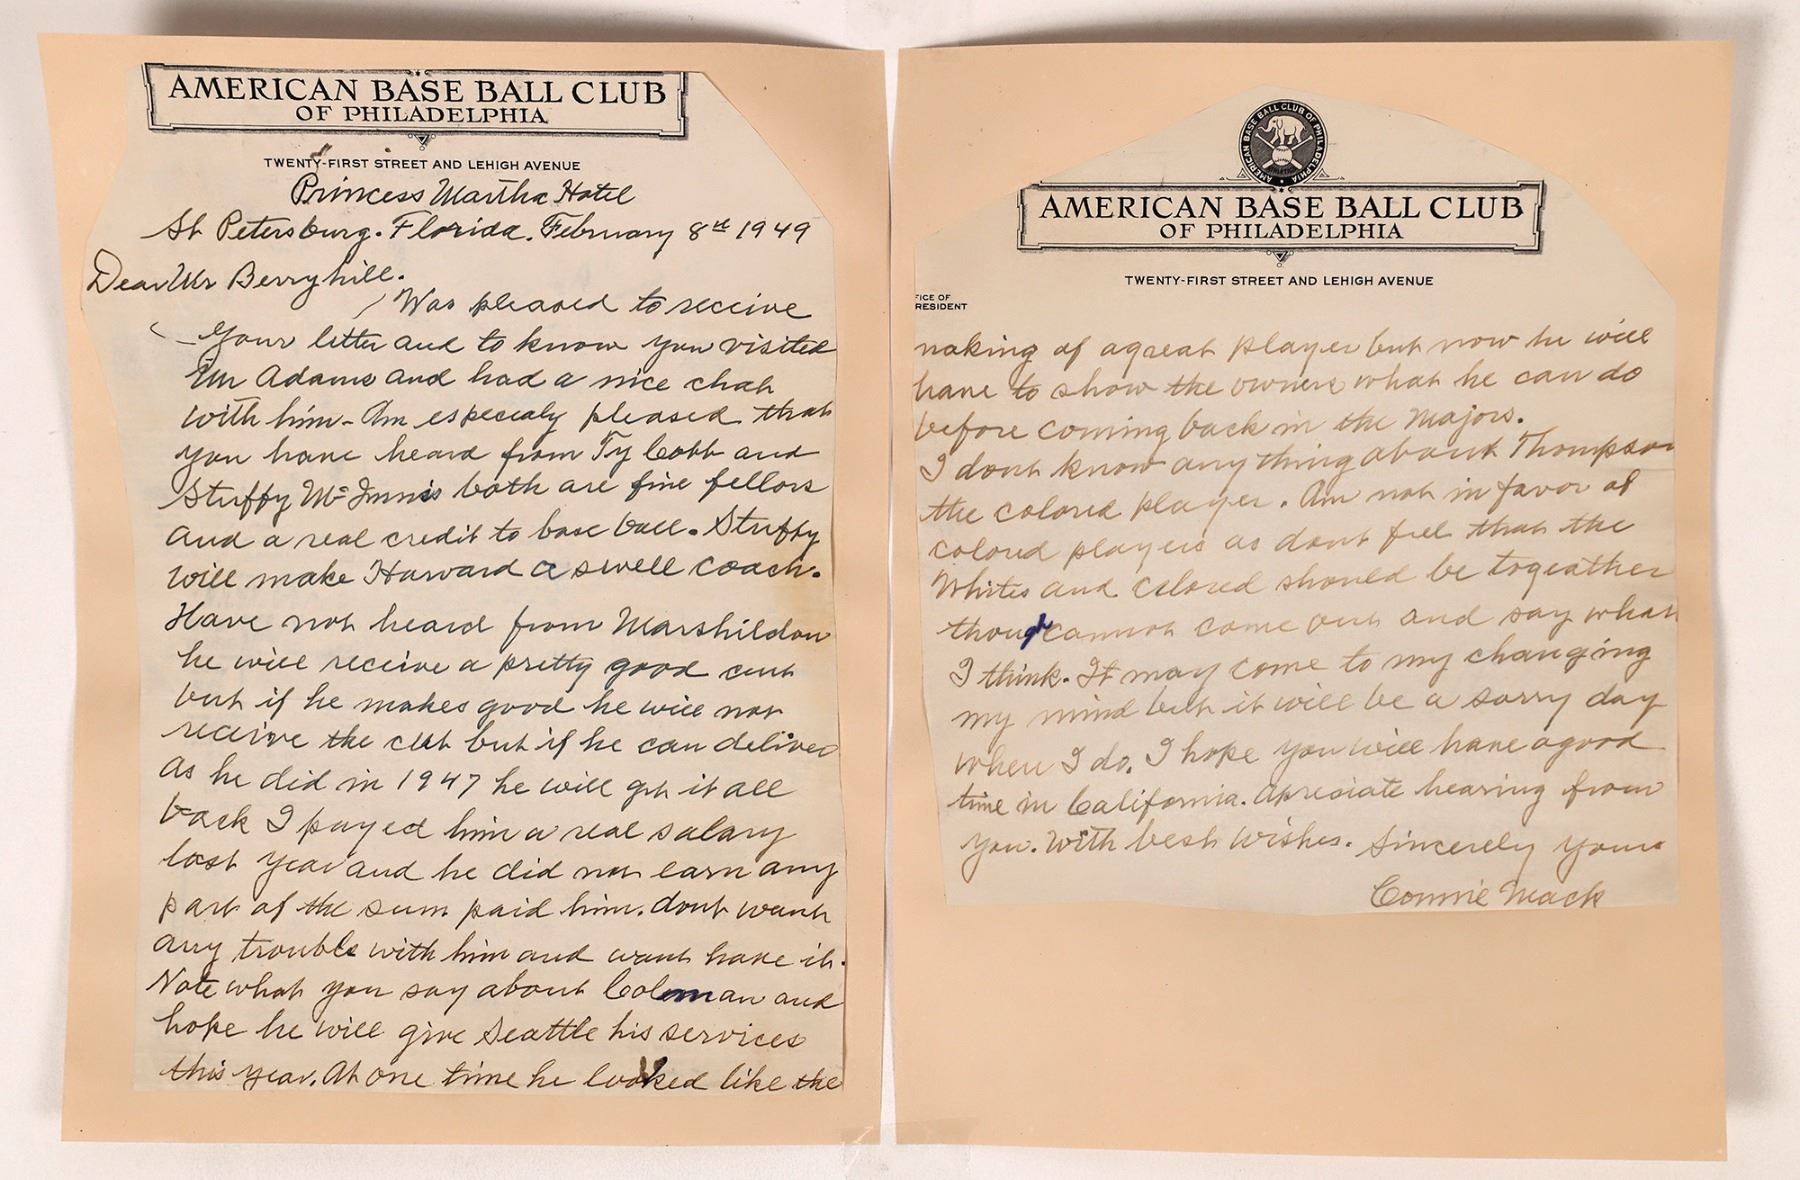 AMERICAN BASE BALL CLUB
OF PHILADELPHIA
TWENTY-FIRST STREET AND LEHIGH AVENUE
Princess Martha Hotel
St Petersburg. Florida. February 8th 1949
Dear Mr Berryhill.
Was pleased to receive
your letter and to know you visited
Mr Adams and had a nice chat
with him - Am especialy pleased that
you have heard from Ty Cobb and
Stuffy McInnis both are fine fellors
and a real credit to base ball. Stuffy
will make Harvard a swell coach.
Have not heard from Marshildon
he will receive a pretty good cut
but if he makes good he will not
receive the cut but if he can deliver
as he did in 1947 he will get it all
back I payed him a real salary
last year and he did not earn any
part of the sum paid him. dont want
any trouble with him and wont have it.
Note what you say about Coleman and
hope he will give Seattle his services
this year. At one time he looked like the
AMERICAN BASE BALL CLUB OF PHILADELPHIA
AMERICAN BASE BALL CLUB
OF PHILADELPHIA
TWENTY-FIRST STREET AND LEHIGH AVENUE
FICE OF
RESIDENT
making of a great player but now he will
have to show the owners what he can do
before coming back in the Majors.
I dont know any thing about Thompson
the colored player. Am not in favor of
colored players as dont feel that the
Whites and Colored should be togeather
though cannot come out and say what
I think. It may come to my changing
my mind but it will be a sorry day
when I do. I hope you will have a good
time in California. Apresiate hearing from
you. With best wishes. Sincerely yours
Connie Mack